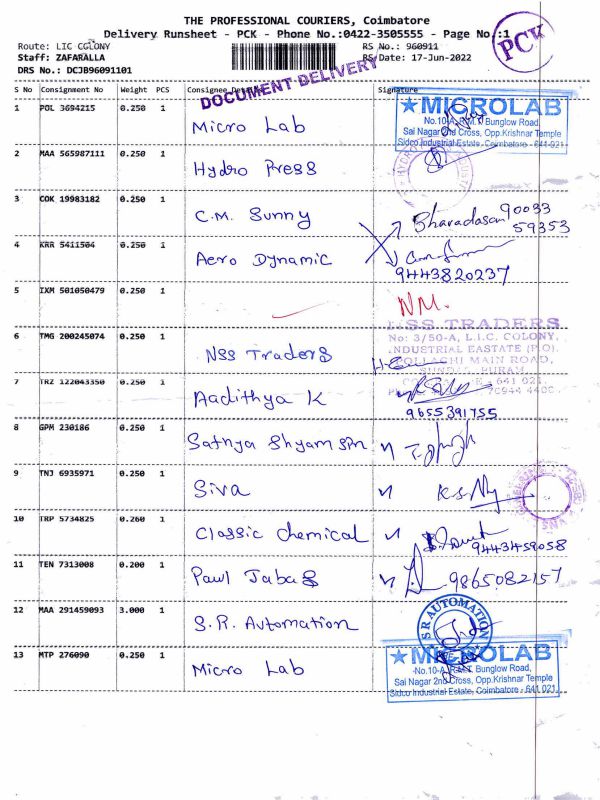 THE PROFESSIONAL COURIERS, Coimbatore
Delivery Runsheet - PCK - Phone No.:0422-3505555 - Page No.:1
PCK
Route: LIC COLONY
RS No.: 960911
Staff: ZAFARALLA
RS Date: 17-Jun-2022
DRS No.: DCJB96091101
DOCUMENT DELIVERY
S No Consignment No Weight PCS Consignee Details Signature
1 POL 3694215 0.250 1 Micro Lab
MICROLAB
No.10-A, R.M.T. Bunglow Road,
Sai Nagar 2nd Cross, Opp.Krishnar Temple
Sidco Industrial Estate, Coimbatore - 641 021
2 MAA 565987111 0.250 1 Hydro Press
3 COK 19983182 0.250 1 C.M. Sunny Bharadasan 90033
59353
4 KRR 5411504 0.250 1 Aero Dynamic
9443820237
5 IXM 501050479 0.250 1 NM.
NSS TRADERS
No: 3/50-A, L.I.C. COLONY,
INDUSTRIAL EASTATE (P.O).
POLLACHI MAIN ROAD,
6 TMG 200245074 0.250 1 NSS Traders
641 021
7 TRZ 122043350 0.250 1 Aadithya K
9655391755
8 GPM 230186 0.250 1 Sathya Shyam SPN
9 TNJ 6935971 0.250 1 Siva
10 TRP 5734825 0.260 1 Classic Chemical
9443459058
11 TEN 7313008 0.200 1 Paul Jabas 9865082157
12 MAA 291459093 3.000 1 S.R. Automation
S R AUTOMATION
13 MTP 276090 0.250 1 Micro Lab
MICROLAB
No.10-A, R.M.T. Bunglow Road,
Sai Nagar 2nd Cross, Opp.Krishnar Temple
Sidco Industrial Estate, Coimbatore - 641 021